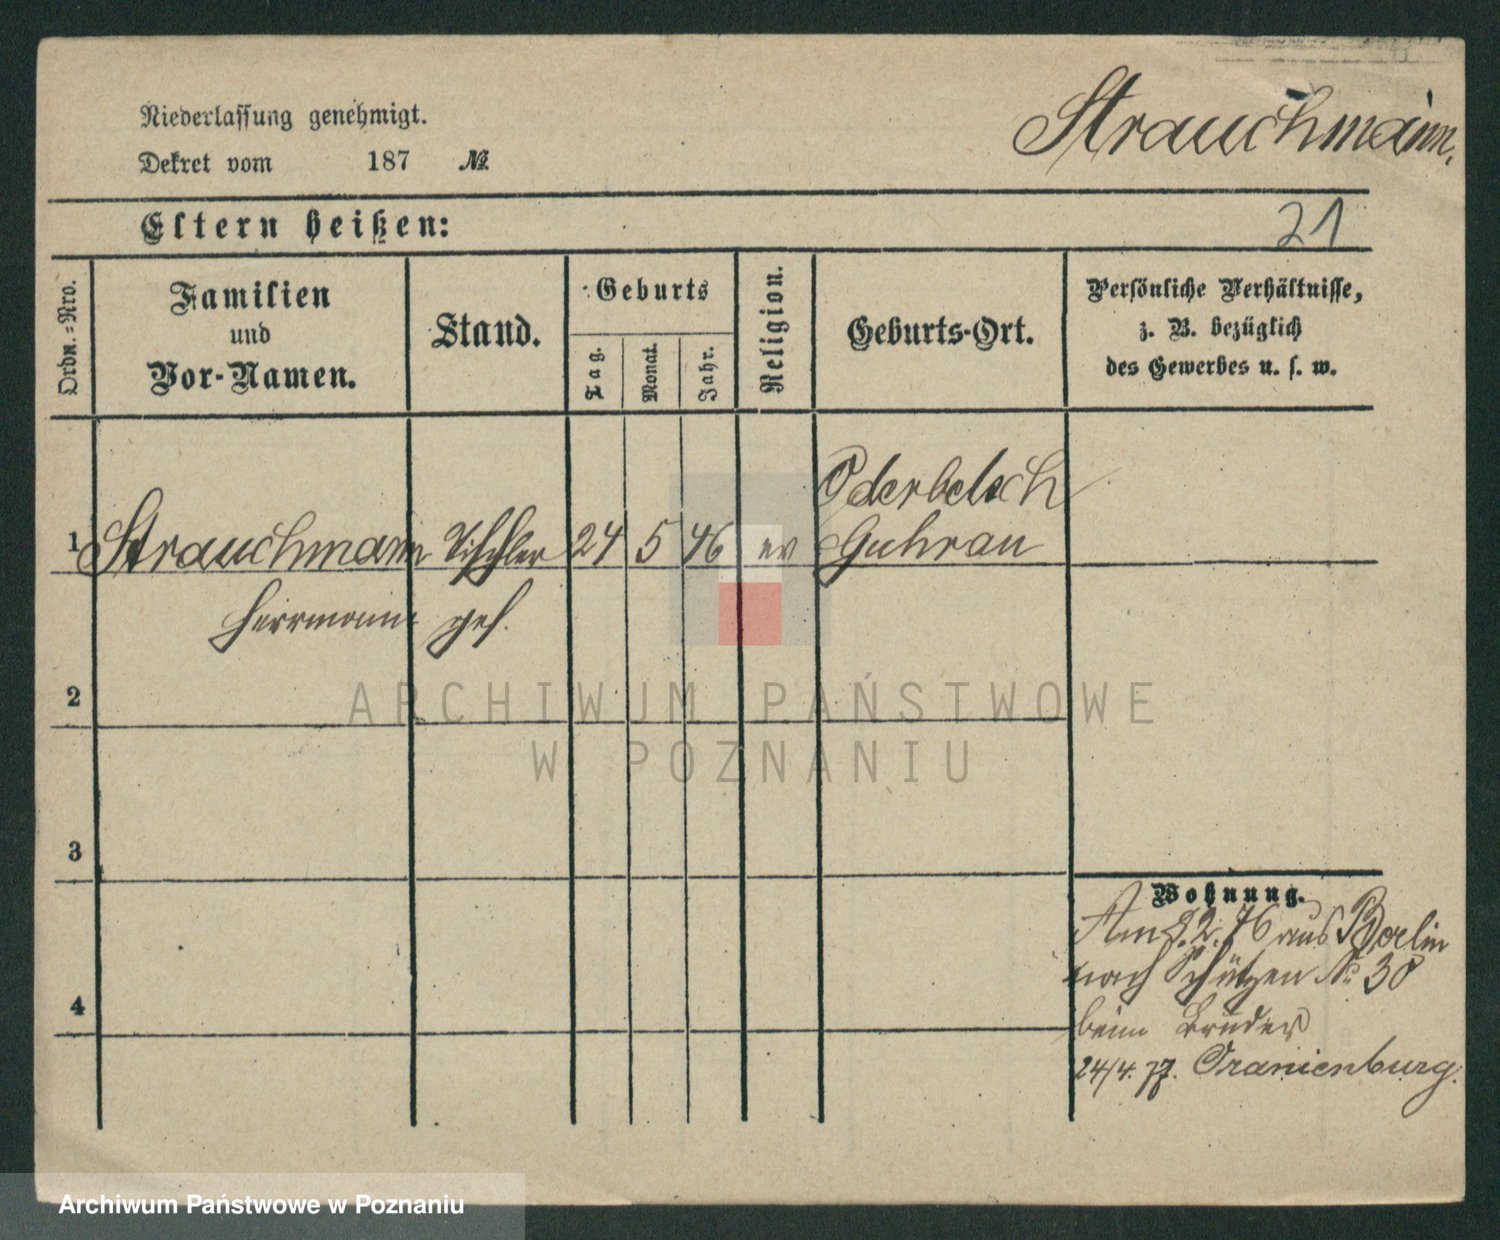 Niederlassung genehmigt.
Dekret vom 187 №
Strauchmann.
Eltern heißen:
21
Ordn.=Nro.
Familien
und
Vor-Namen.
Stand.
Geburts
Tag.
Monat.
Jahr.
Religion.
Geburts-Ort.
Persönliche Verhältnisse,
z. B. bezüglich
des Gewerbes u. s. w.
1 Strauchmann Tischler 24 5 46 ev Guhrau
Herrmann ges.
2
3
4
Wohnung.
Am 8.2.76 aus Berlin
nach Schützen № 30
beim Bruder
24/4. 77. Oranienburg.
ARCHIWUM PAŃSTWOWE
W POZNANIU
Archiwum Państwowe w Poznaniu